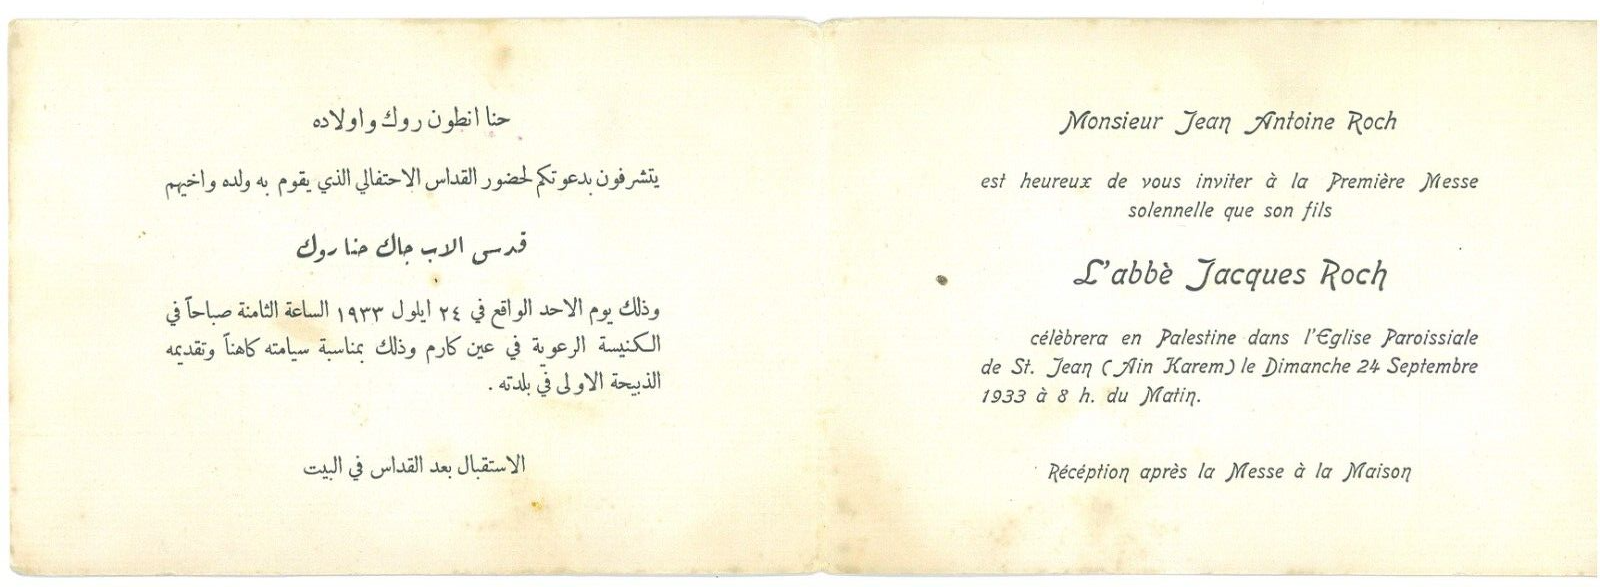 حنا انطون روك واولاده
يتشرفون بدعوتكم لحضور القداس الاحتفالي الذي يقوم به ولده واخيهم
قدس الاب جاك حنا روك
وذلك يوم الاحد الواقع في ٢٤ ايلول ١٩٣٣ الساعة الثامنة صباحاً في
الكنيسة الرعوية في عين كارم وذلك بمناسبة سيامته كاهناً وتقديمه
الذبيحة الاولى في بلدته .
الاستقبال بعد القداس في البيت
Monsieur Jean Antoine Roch
est heureux de vous inviter à la Première Messe
solennelle que son fils
L'abbè Jacques Roch
célèbrera en Palestine dans l'Eglise Paroissiale
de St. Jean (Ain Karem) le Dimanche 24 Septembre
1933 à 8 h. du Matin.
Récéption après la Messe à la Maison